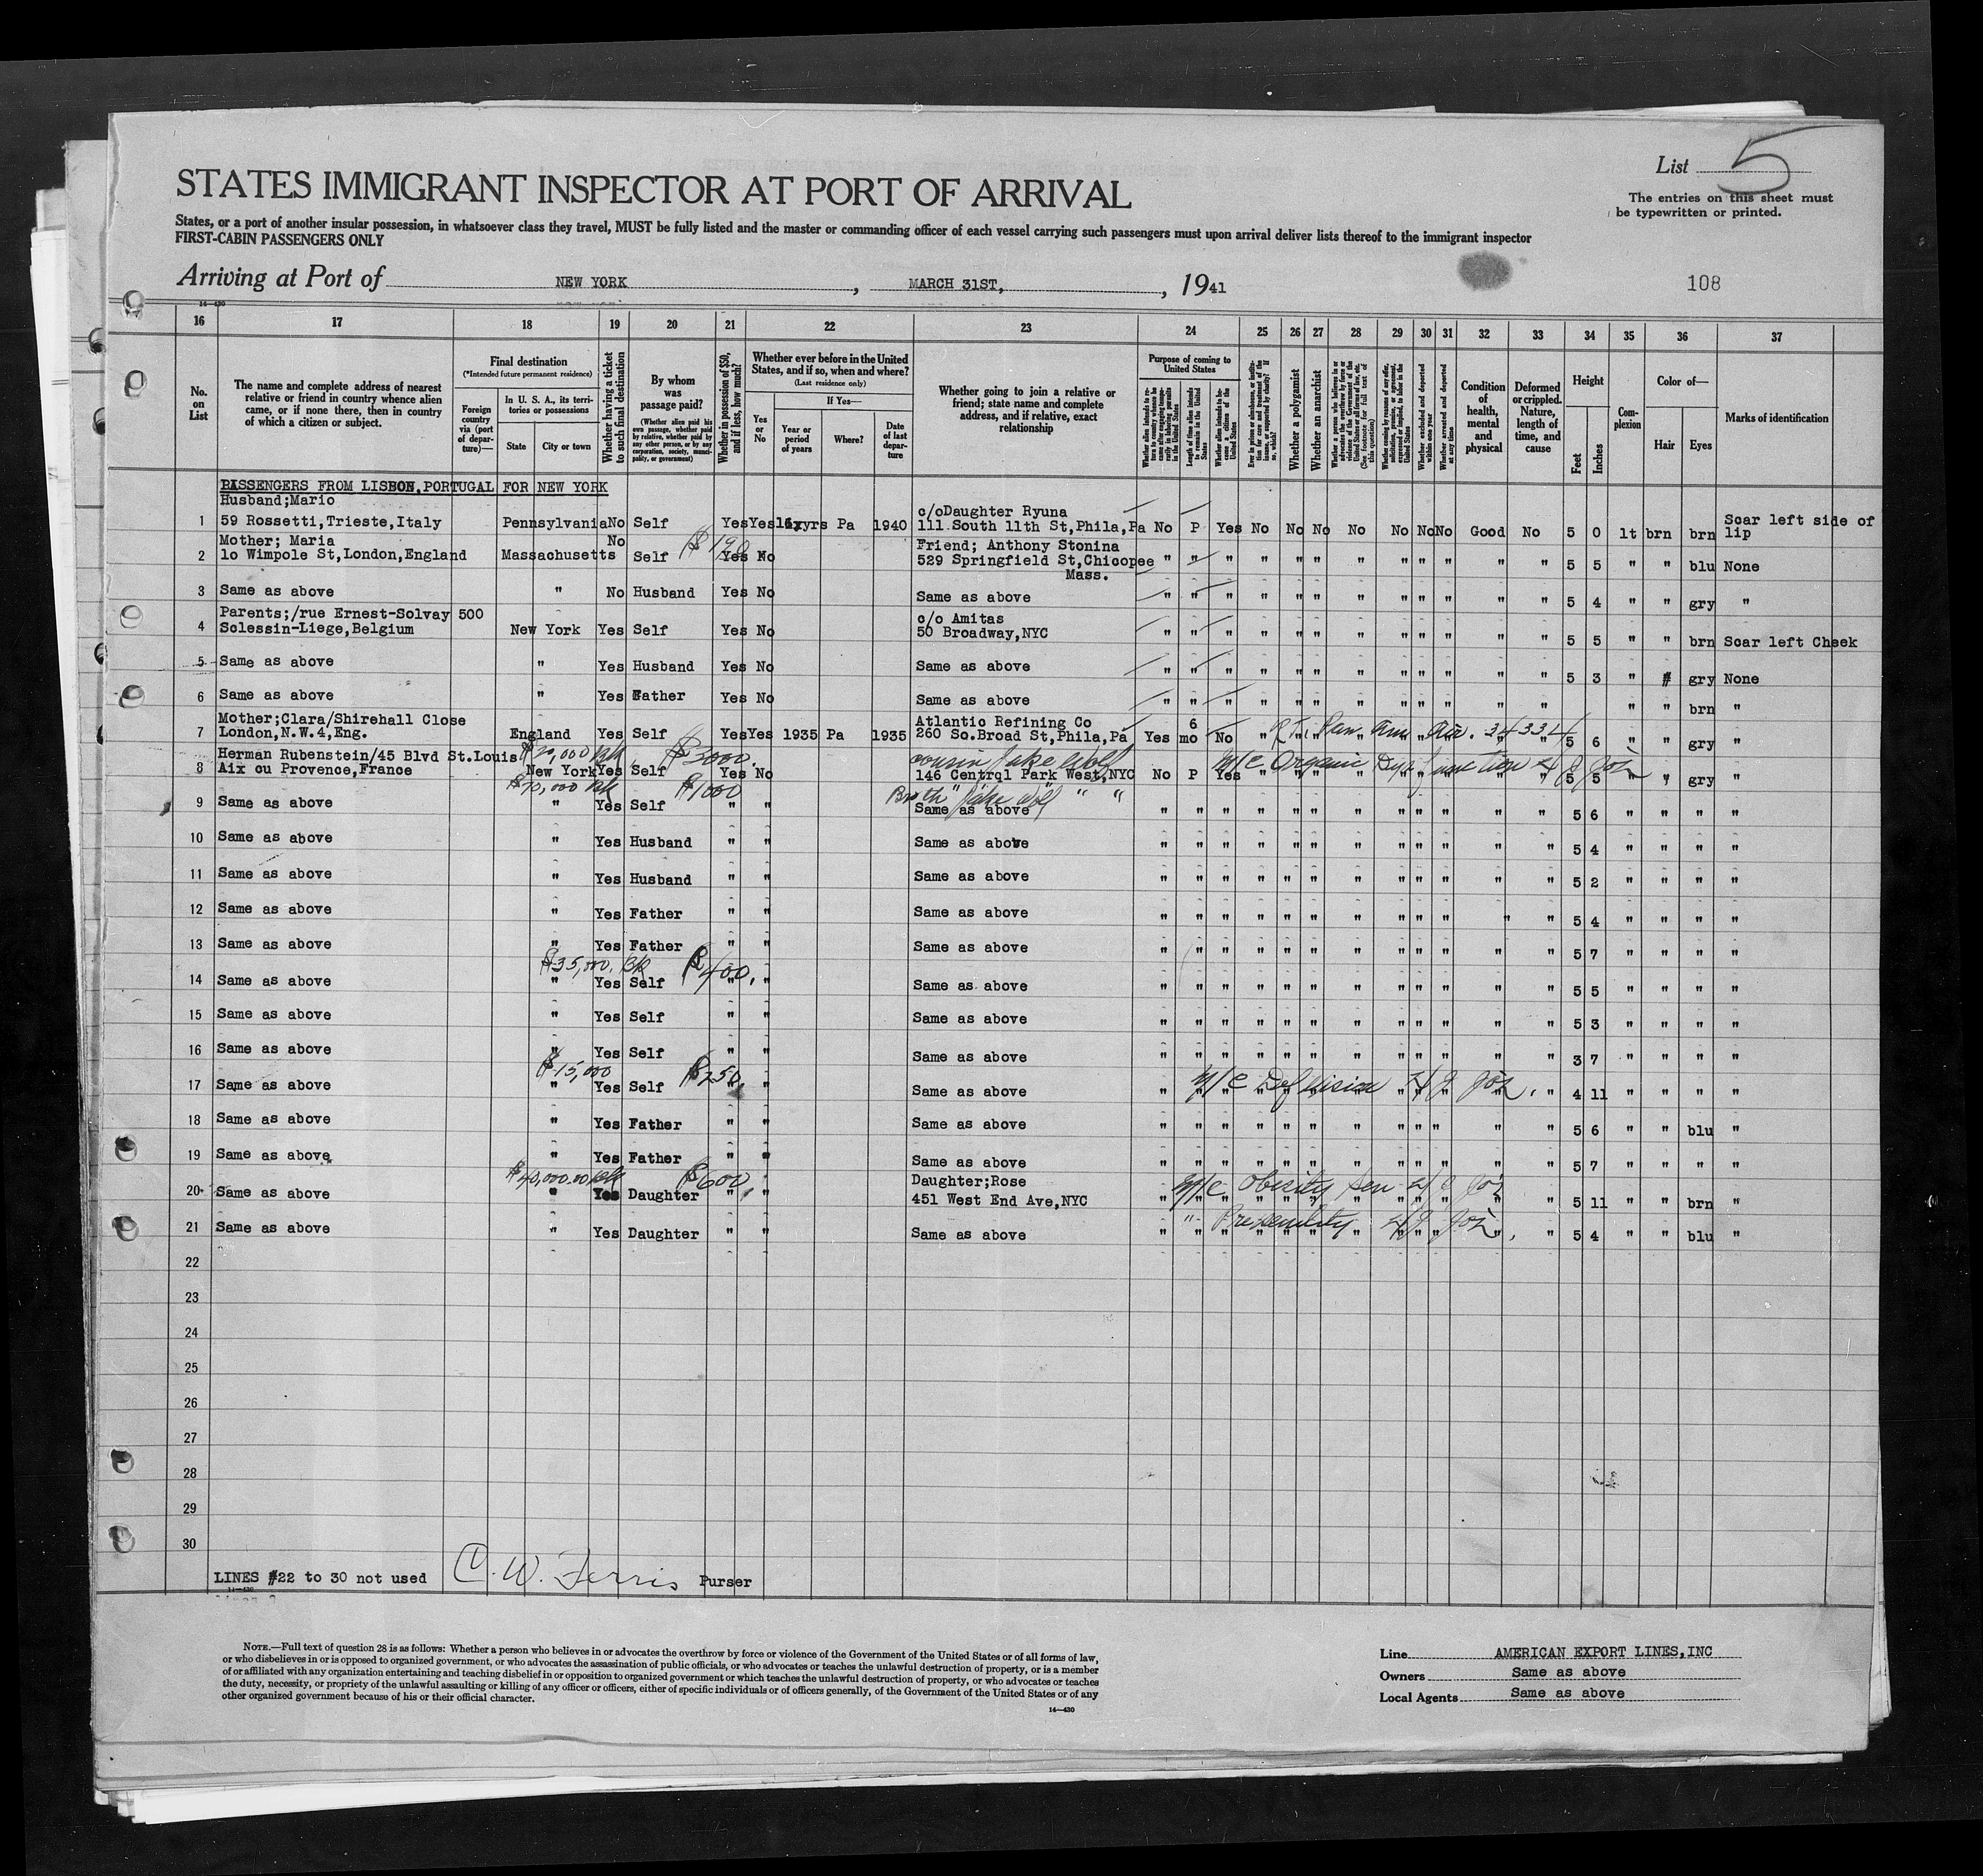 List 5
The entries on this sheet must
be typewritten or printed.
STATES IMMIGRANT INSPECTOR AT PORT OF ARRIVAL
States, or a port of another insular possession, in whatsoever class they travel, MUST be fully listed and the master or commanding officer of each vessel carrying such passengers must upon arrival deliver lists thereof to the immigrant inspector
FIRST-CABIN PASSENGERS ONLY
Arriving at Port of NEW YORK, MARCH 31ST, 1941
108
14—430
16 17 18 19 20 21 22 23 24 25 26 27 28 29 30 31 32 33 34 35 36 37
No. on List
The name and complete address of nearest relative or friend in country whence alien came, or if none there, then in country of which a citizen or subject.
Final destination
(*Intended future permanent residence)
Foreign country via (port of departure)—
In U. S. A., its territories or possessions
State
City or town
Whether having a ticket to such final destination
By whom was passage paid?
(Whether alien paid his own passage, whether paid by relative, whether paid by any other person, or by any corporation, society, municipality, or government)
Whether in possession of $50, and if less, how much?
Whether ever before in the United States, and if so, when and where?
(Last residence only)
Yes or No
If Yes—
Year or period of years
Where?
Date of last departure
Whether going to join a relative or friend; state name and complete address, and if relative, exact relationship
Purpose of coming to United States
Length of time alien intends to remain in the United States
Whether alien intends to become a citizen of the United States
Whether a polygamist
Whether an anarchist
Whether excluded and deported within one year
Whether arrested and deported at any time
Condition of health, mental and physical
Deformed or crippled. Nature, length of time, and cause
Height
Feet
Inches
Complexion
Color of—
Hair
Eyes
Marks of identification
PASSENGERS FROM LISBON, PORTUGAL FOR NEW YORK
Husband;Mario
c/oDaughter Ryuna
1 59 Rossetti,Trieste,Italy Pennsylvania No Self Yes Yes yrs Pa 1940 111 South 11th St,Phila,Pa No P Yes No No No No No No No Good No 5 0 lt brn brn Scar left side of lip
Mother; Maria No Friend; Anthony Stonina
2 1o Wimpole St,London,England Massachusetts Self Yes No 529 Springfield St,Chicopee Mass. " " " " " " " " " " " " 5 5 " " blu None
3 Same as above " No Husband Yes No Same as above " " " " " " " " " " " " 5 4 " " gry "
Parents;/rue Ernest-Solvay 500 c/o Amitas
4 Sclessin-Liege,Belgium New York Yes Self Yes No 50 Broadway,NYC " " " " " " " " " " " " 5 5 " " brn Scar left Cheek
5 Same as above " Yes Husband Yes No Same as above " " " " " " " " " " " " 5 3 " " gry None
6 Same as above " Yes Father Yes No Same as above " " " " " " " " " " " " " " brn "
Mother;Clara/Shirehall Close Atlantic Refining Co 6
7 London,N.W.4,Eng. England Yes Self Yes Yes 1935 Pa 1935 260 So.Broad St,Phila,Pa Yes mo No " " " " " " " " " 5 6 " " gry "
Herman Rubenstein/45 Blvd St.Louis $3000. cousin Jake Wolf
8 Aix ou Provence,France New York Yes Self Yes No 146 Centrql Park West,NYC No P Yes M/C Organic 5 5 " " gry "
$1000
9 Same as above " Yes Self " " Same as above " " " " " " " " " " " " 5 6 " " " "
10 Same as above " Yes Husband " " Same as above " " " " " " " " " " " " 5 4 " " " "
11 Same as above " Yes Husband " " Same as above " " " " " " " " " " " " 5 2 " " " "
12 Same as above " Yes Father " " Same as above " " " " " " " " " " " " 5 4 " " " "
13 Same as above " Yes Father " " Same as above " " " " " " " " " " " " 5 7 " " " "
$35,000. $400.
14 Same as above " Yes Self " " Same as above " " " " " " " " " " " " 5 5 " " " "
15 Same as above " Yes Self " " Same as above " " " " " " " " " " " " 5 3 " " " "
16 Same as above " Yes Self " " Same as above " " " " " " " " " " " " 3 7 " " " "
$15,000 $250.
17 Same as above " Yes Self " " Same as above " M/C Def Vision " 4 11 " " " "
18 Same as above " Yes Father " " Same as above " " " " " " " " " " " " 5 6 " " blu "
19 Same as above " Yes Father " " Same as above " " " " " " " " " " " " 5 7 " " " "
$40,000.00 $600. Daughter;Rose M/C Obesity
20 Same as above " Yes Daughter " " 451 West End Ave,NYC " " " " " " " " " " " " 5 11 " " brn "
21 Same as above " Yes Daughter " " Same as above " " Presenility " " " " " " " " " 5 4 " " blu "
22
23
24
25
26
27
28
29
30
LINES #22 to 30 not used C. W. Ferris Purser
14—430
NOTE.—Full text of question 28 is as follows: Whether a person who believes in or advocates the overthrow by force or violence of the Government of the United States or of all forms of law,
or who disbelieves in or is opposed to organized government, or who advocates the assassination of public officials, or who advocates or teaches the unlawful destruction of property, or is a member
of or affiliated with any organization entertaining and teaching disbelief in or opposition to organized government or which teaches the unlawful destruction of property, or who advocates or teaches
the duty, necessity, or propriety of the unlawful assaulting or killing of any officer or officers, either of specific individuals or of officers generally, of the Government of the United States or of any
other organized government because of his or their official character.
14—430
Line AMERICAN EXPORT LINES,INC
Owners Same as above
Local Agents Same as above